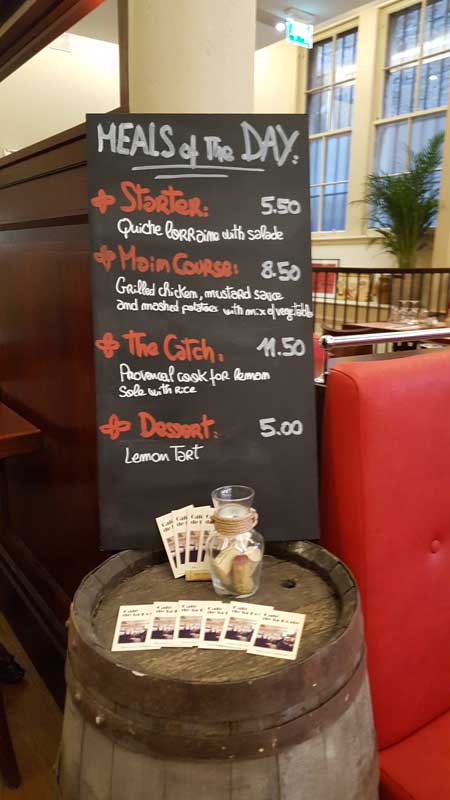 MEALS of The DAY:
Starter: 5.50
Quiche lorraine with salade
Main Course: 8.50
Grilled chicken, mustard sauce
and mashed potatoes with mix of vegetables
The Catch: 11.50
Provencal cook for lemon
Sole with rice
Dessert: 5.00
Lemon Tart